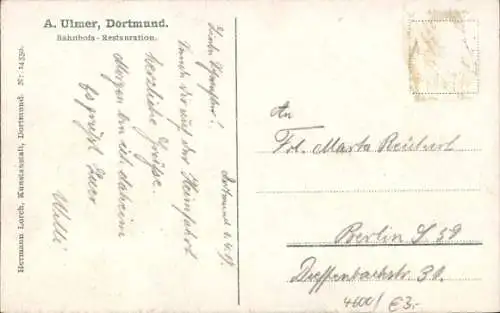 A. Ulmer, Dortmund.
Bahnhofs-Restauration.
Hermann Lorch, Kunstanstalt, Dortmund. Nr. 14330.
Dortmund
Sende Dir auf der Heimfahrt
herzliche Grüße.
Morgen bin ich daheim
Es grüßt Euer
Willi
An
Frl. Marta Reichert
Berlin S 59
Dieffenbachstr. 30.
4600/ €3.-